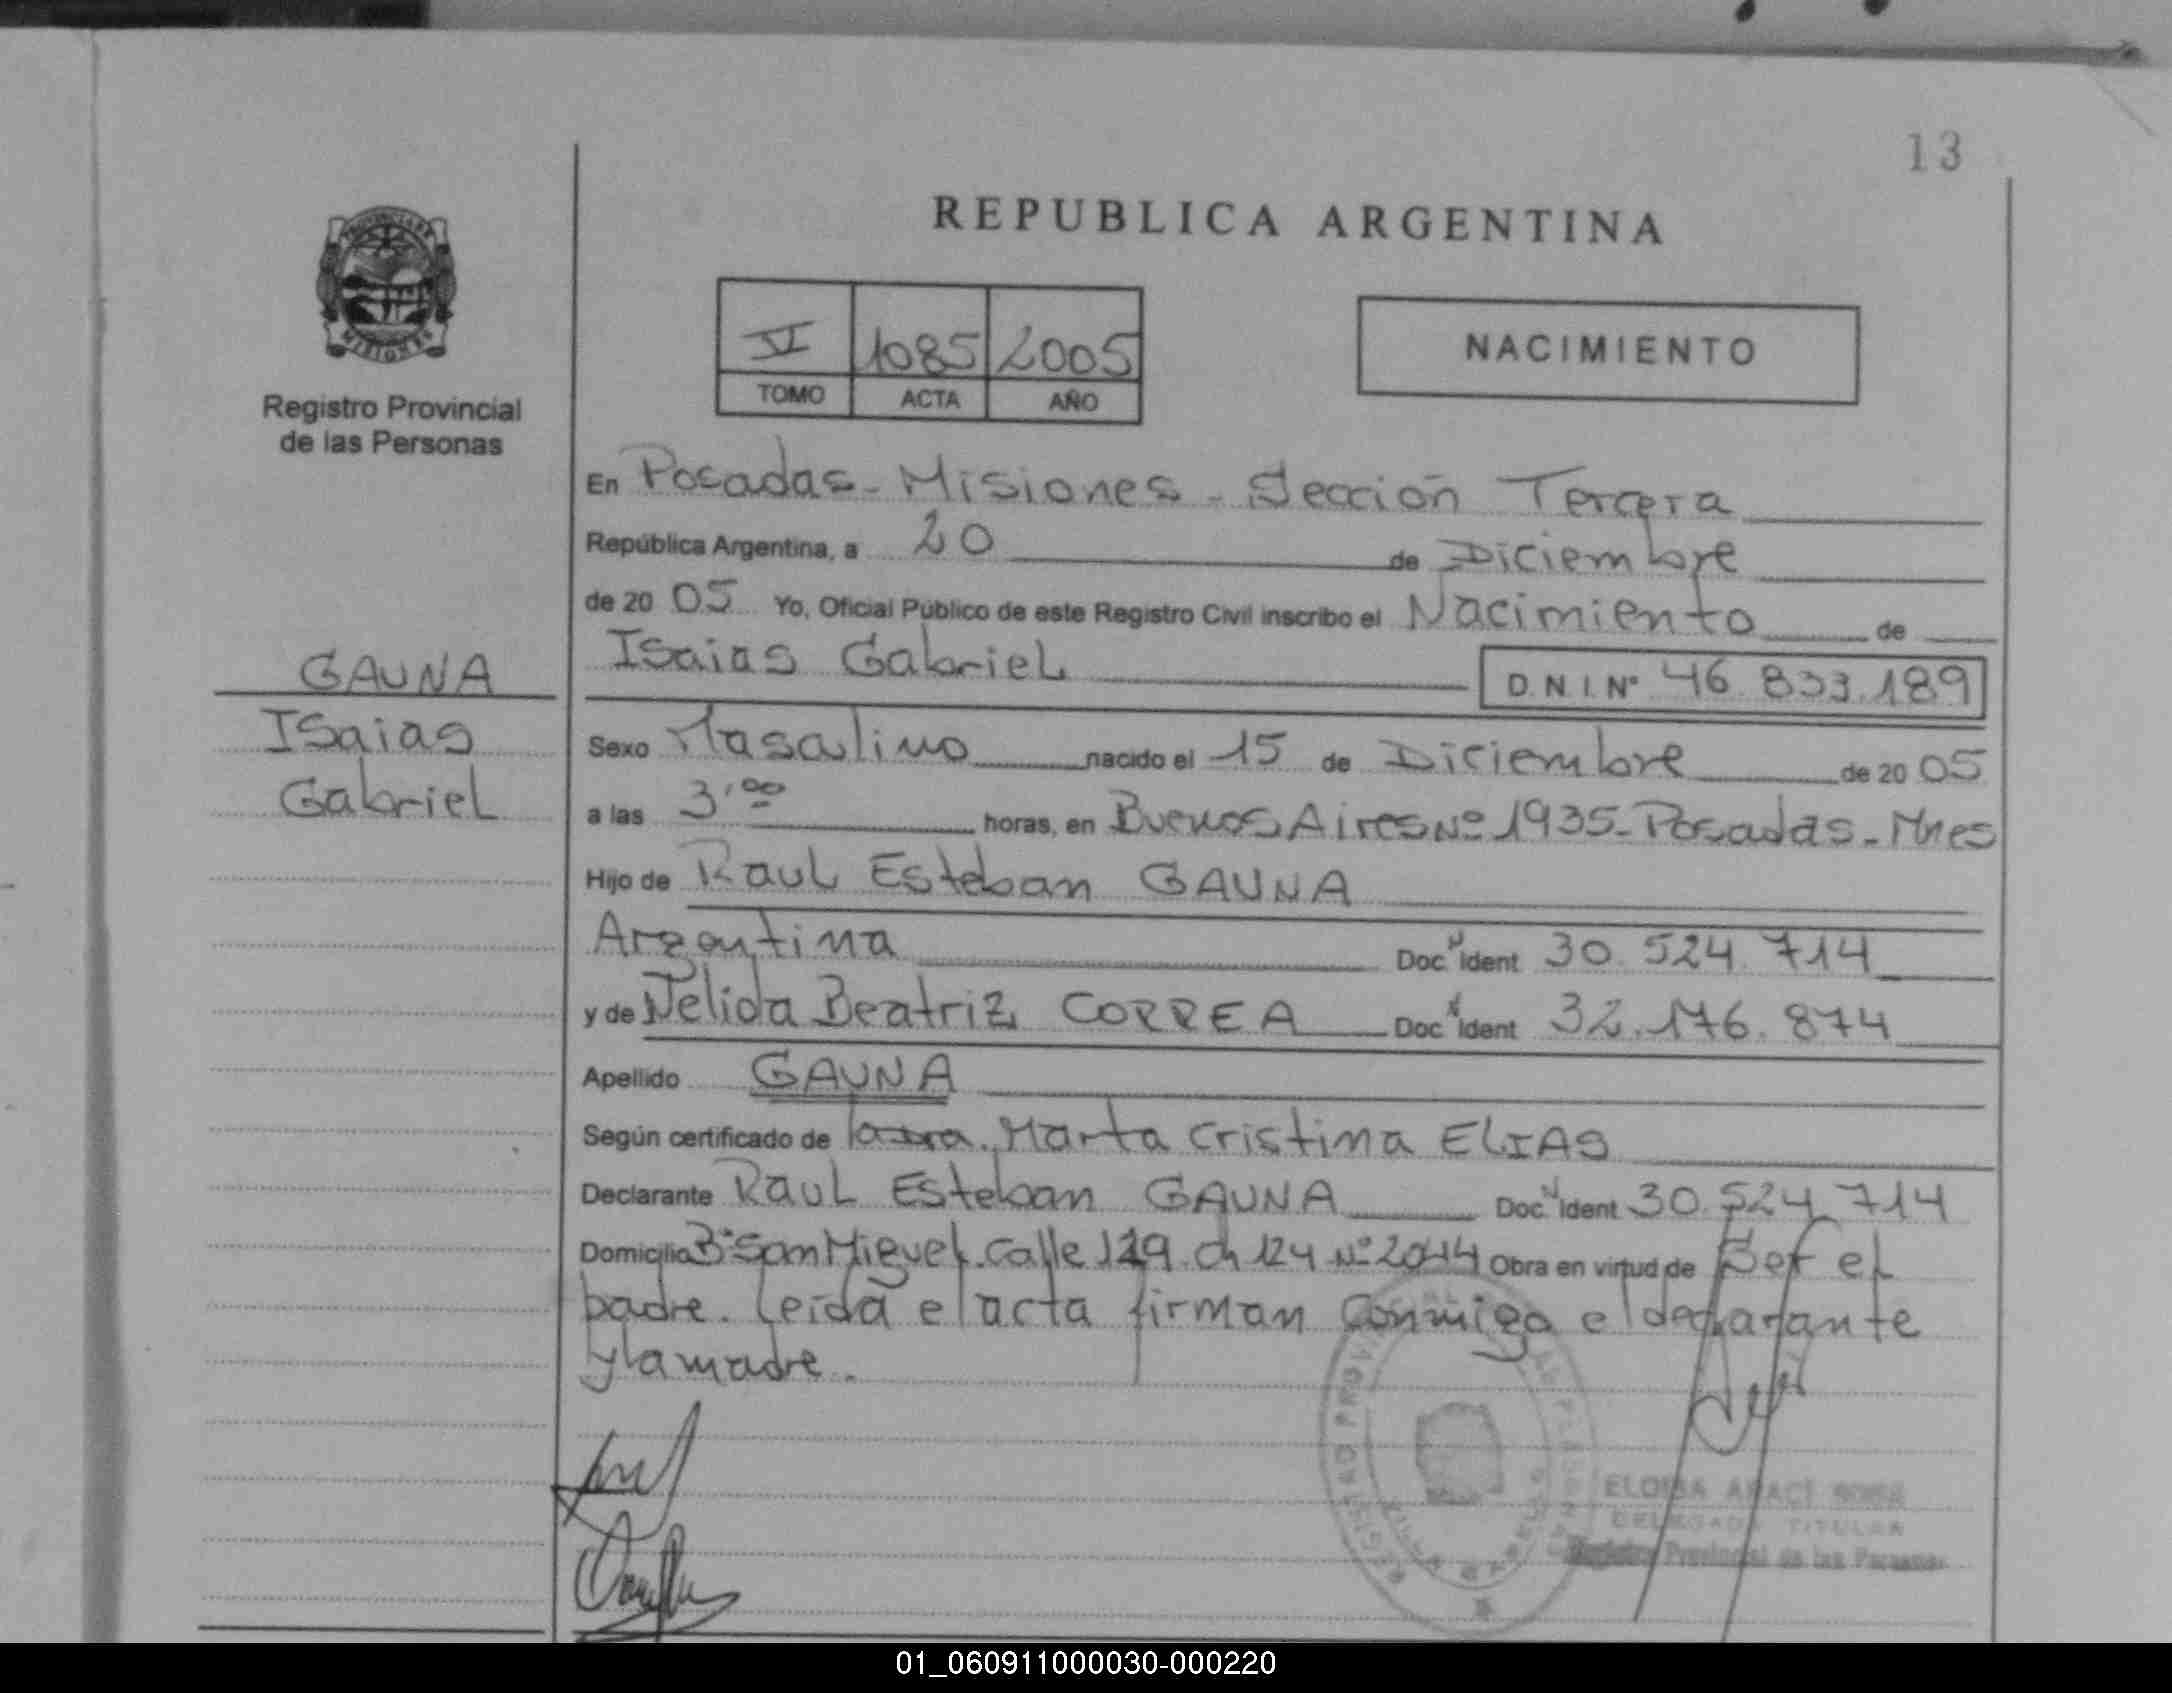 13
REPUBLICA ARGENTINA
PROVINCIA DE
MISIONES
Registro Provincial
de las Personas
VI 1085 2005
TOMO ACTA AÑO
NACIMIENTO
En Posadas - Misiones - Sección Tercera
República Argentina, a 20 de Diciembre
de 20 05 Yo, Oficial Público de este Registro Civil inscribo el Nacimiento de
Isaias Gabriel D.N.I. Nº 46.833.189
GAUNA
Isaias
Gabriel
Sexo Masculino nacido el 15 de Diciembre de 20 05
a las 3,00 horas, en Buenos Aires Nº 1935 - Posadas - Mnes
Hijo de Raul Esteban GAUNA
Argentina Doc. Ident 30.524.714
y de Nelida Beatriz CORREA Doc. Ident 32.176.874
Apellido GAUNA
Según certificado de la dra. Marta Cristina ELIAS
Declarante Raul Esteban GAUNA Doc. Ident 30.524.714
Domicilio Bº San Miguel. Calle 129. ch 124 Nº 2044 Obra en virtud de Ser el
padre. Leida el acta firman conmigo el declarante
y la madre.
REGISTRO PROVINCIAL DE LAS PERSONAS
DELEGADA TITULAR
Registro Provincial de las Personas
01_060911000030-000220